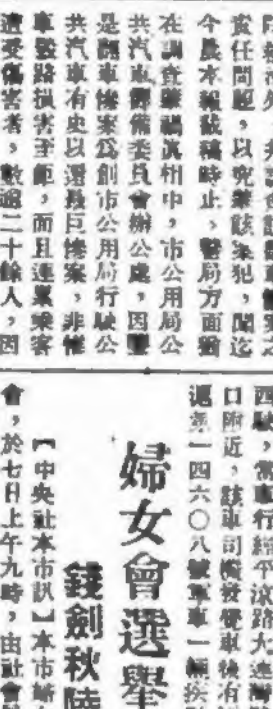 責任問題,以究辦該案犯,聞迄
今晨本報截稿時止,警局方面猶
在調查肇禍真相中,市公用局公
共汽車籌備委員會辦公處,因鑒
是翻車慘案爲創市公用局行駛公
共汽車有史以還最巨慘案,非惟
車毀路損害至鉅,而且連累乘客
遭受傷害者,數逾二十餘人,因
西駛,當車行經平涼路大連灣
口附近,該車司機發覺車後有
滬字一四六〇八號軍車一輛疾
婦女會選舉
錢劍秋陸
【中央社本市訊】本市婦
會,於七日上午九時,由社會